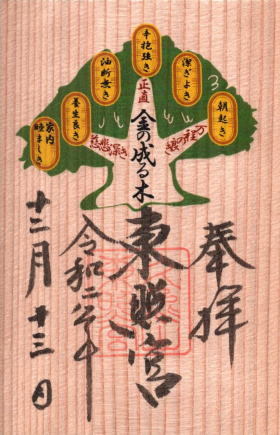 朝起き
潔ぎよき
辛抱強き
油断無き
養生良き
家内睦ましき
正直
慈悲深き
金の成る木
奉拝
東照宮
令和二年
十二月十三日